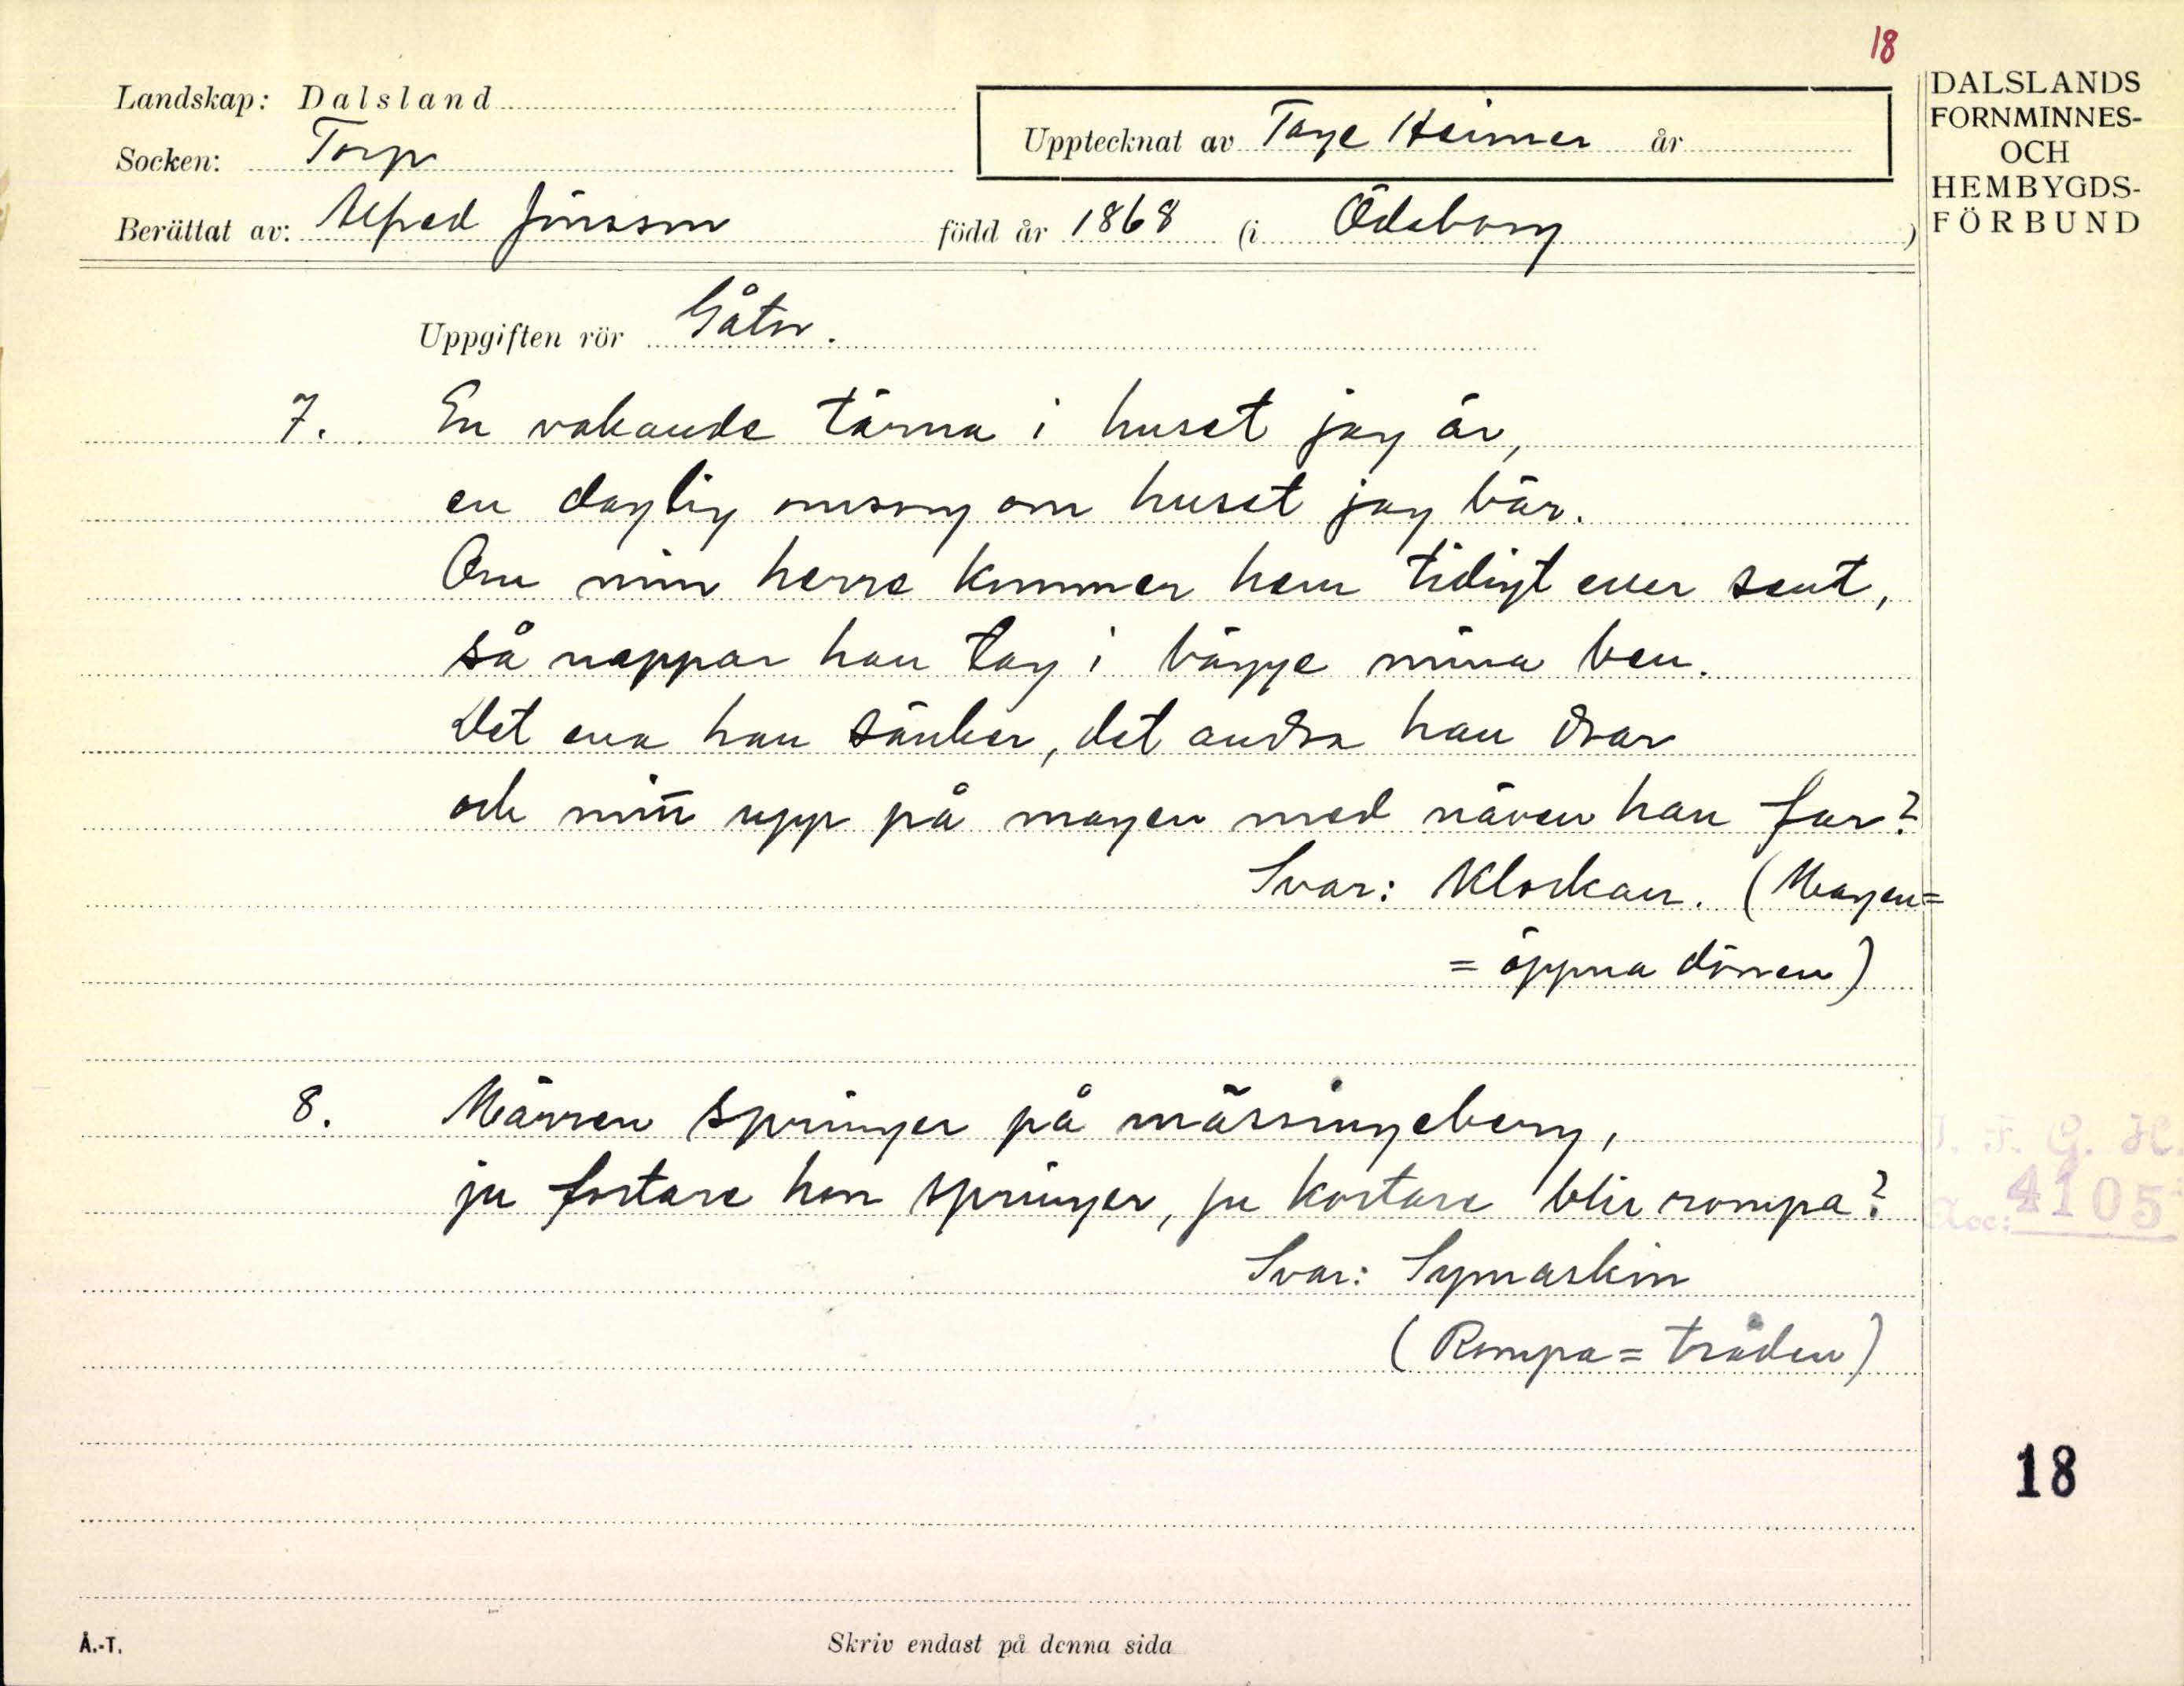 18
Landskap: Dalsland
Upptecknat av Tage Heimer år
Socken: Torp
Berättat av: Alfred Jönsson född år 1868 (i Ödeborg)
DALSLANDS
FORNMINNES-
OCH
HEMBYGDS-
FÖRBUND
Uppgiften rör Gåtor.
7. En vakande tärna i huset jag är,
en daglig omsorg om huset jag bär.
Om min herre kommer hem tidigt eller sent,
så nappar han tag i bägge mina ben.
Det ena han sänker, det andra han drar
och mitt upp på magen med näven han far?
Svar: Klockan. (Magen=
= öppna dörren)
8. Märren springer på mässingeberg,
ju fortare hon springer, ju kortare blir rompa?
Svar: Symaskin
(Rompa = tråden)
I. F. G. H.
Acc: 4105
18
Å.-T.
Skriv endast på denna sida